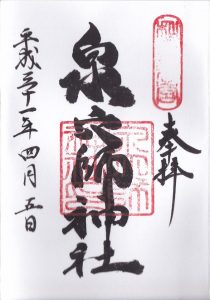 奉拝
泉穴師神社
平成三十一年四月五日